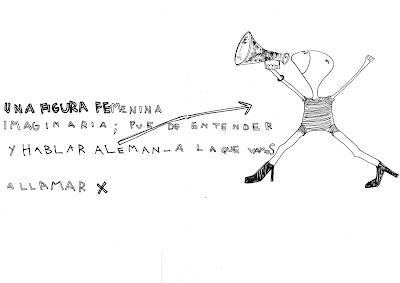 UNA FIGURA FEMENINA
IMAGINARIA; PUE DO ENTENDER
Y HABLAR ALEMAN_ A LA QUE VAMOS
A LLAMAR X